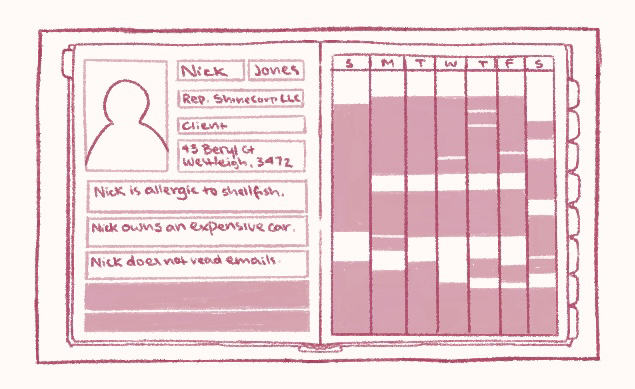 Nick Jones
Rep. ShineCorp LLC
Client
45 Beryl Ct
Westleigh, 3472
Nick is allergic to shellfish.
Nick owns an expensive car.
Nick does not read emails.
S M T W T F S